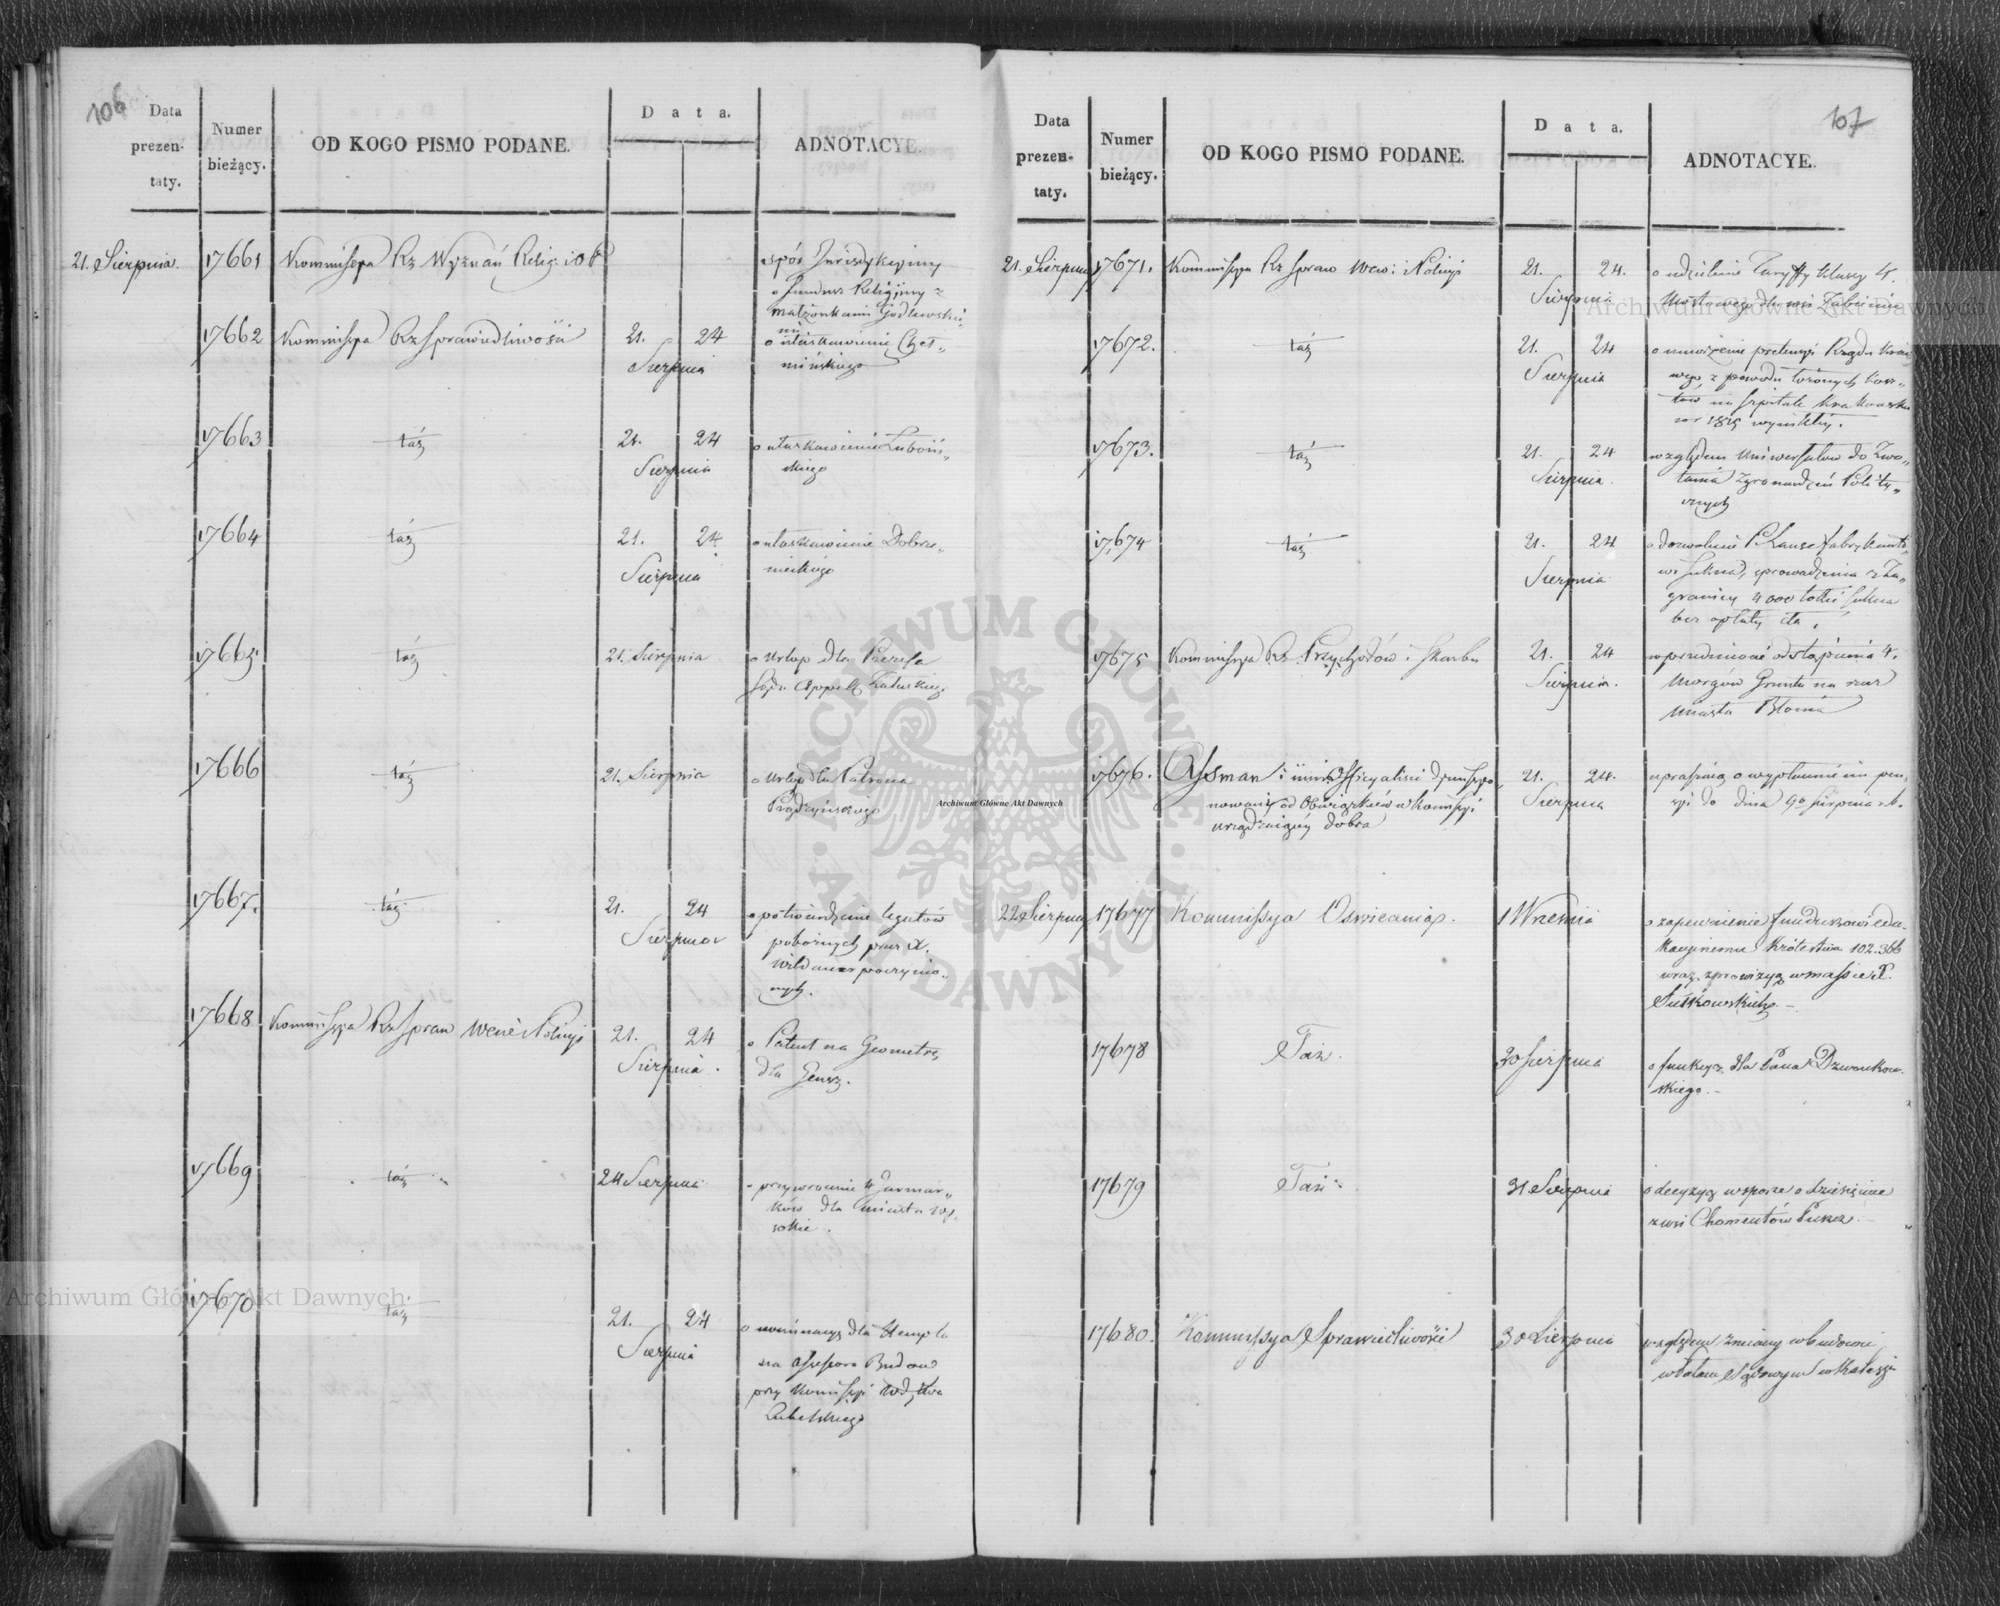 106
Data
prezen-
taty.
Numer
bieżący.
OD KOGO PISMO PODANE.
Data.
ADNOTACYE.
21. Sierpnia.
17661
Kommissya Rz Wyznań Relig: i OP
spór Jurisdykcyiny
o fundusz Religijny z
małżonkami Godlewski
mi
17662
Kommissya Rz Sprawiedliwości
21. 24
Sierpnia
o ułaskawienie
mińskiego
17663
táż
21. 24
Sierpnia
o ułaskawienie Luboiń„
skiego
17664
táż
21. 24
Sierpnia
o ułaskawienie Dobrze„
nieckiego
17665
táż
21. Sierpnia
o Urlop dla Prezesa
Sądu Appell:
17666
táż
21. Sierpnia
o Urlop dla Patrona
Prądzyńskiego
17667.
táż
21. 24
Sierpnia
o potwierdzenie legatów
pobożnych przez X.
poczynio„
nych.
17668
Kommissya Rz Spraw Wew: i Policyi
21. 24
Sierpnia.
o Patent na Geometrę
dla
17669
táż
24 Sierpnia
o przywrócenie 4 Jarmar„
ków dla miasta Wy„
sokie.
17670
táż
21. 24
Sierpnia
o nominacyą dla Hempla
na Assessora Budow
przy Komissyi Wdztwa
Lubelskiego
107
Data
prezen-
taty.
Numer
bieżący.
OD KOGO PISMO PODANE.
Data.
ADNOTACYE.
21. Sierpnia
17671.
Kommissya Rz Spraw Wew: i Policyi
21. 24.
Sierpnia
o udzielenie Taryffy klassy 4.
Mostowego dla wsi
17672.
táż
21. 24
Sierpnia
o umorzenie pretensyi Rządu
wego z powodu łożonych kosz„
tów na szpitale
w r 1815 wynikłéy.
17673.
táż
21. 24
Sierpnia.
względem Uniwersałów do Zwo„
łania Zgromadzeń Polity„
cznych
17674
táż
21. 24
Sierpnia
o dozwolenie fabrykanto„
wi sukna, sprowadzenia z Za„
granicy 4000 łokci sukna
bez opłaty cła.
17675
Kommissya Rz Przychodów i Skarbu
21. 24
Sierpnia.
odstąpienia 4.
Morgów Gruntu na rzecz
Miasta Błonia
17676.
Assman i inni Officyaliści
nowani od Obowiązków w Komissyi
urządzaiącéy dobra
21. 24.
Sierpnia
upraszaią o wypłacenie im pen„
syi do dnia 90 Sierpnia r.b.
22 Sierpnia
17677
Kommissya Oswiecenia.
1 Wrzesnia
o zapewnienie funduszowi edu-
kacyinemu Królestwa 102.366
wraz z prowizyą w massie X.
Sułkowskich. –
17678
Taż.
30 Sierpnia
o funkcyą dla Pana Dzwonkow-
skiego. –
17679
Taż.
31 Sierpnia
o decyzyą w sporze o dziesięcinę
z wsi Chomentów Puszcz. –
17680.
Kommissya Sprawiedliwości
30 Sierpnia
względem zmiany w budowie
w Pałacu Sądowym w Kaliszu
Archiwum Główne Akt Dawnych
Archiwum Główne Akt Dawnych
Archiwum Główne Akt Dawnych
ARCHIWUM GŁÓWNE · AKT DAWNYCH ·